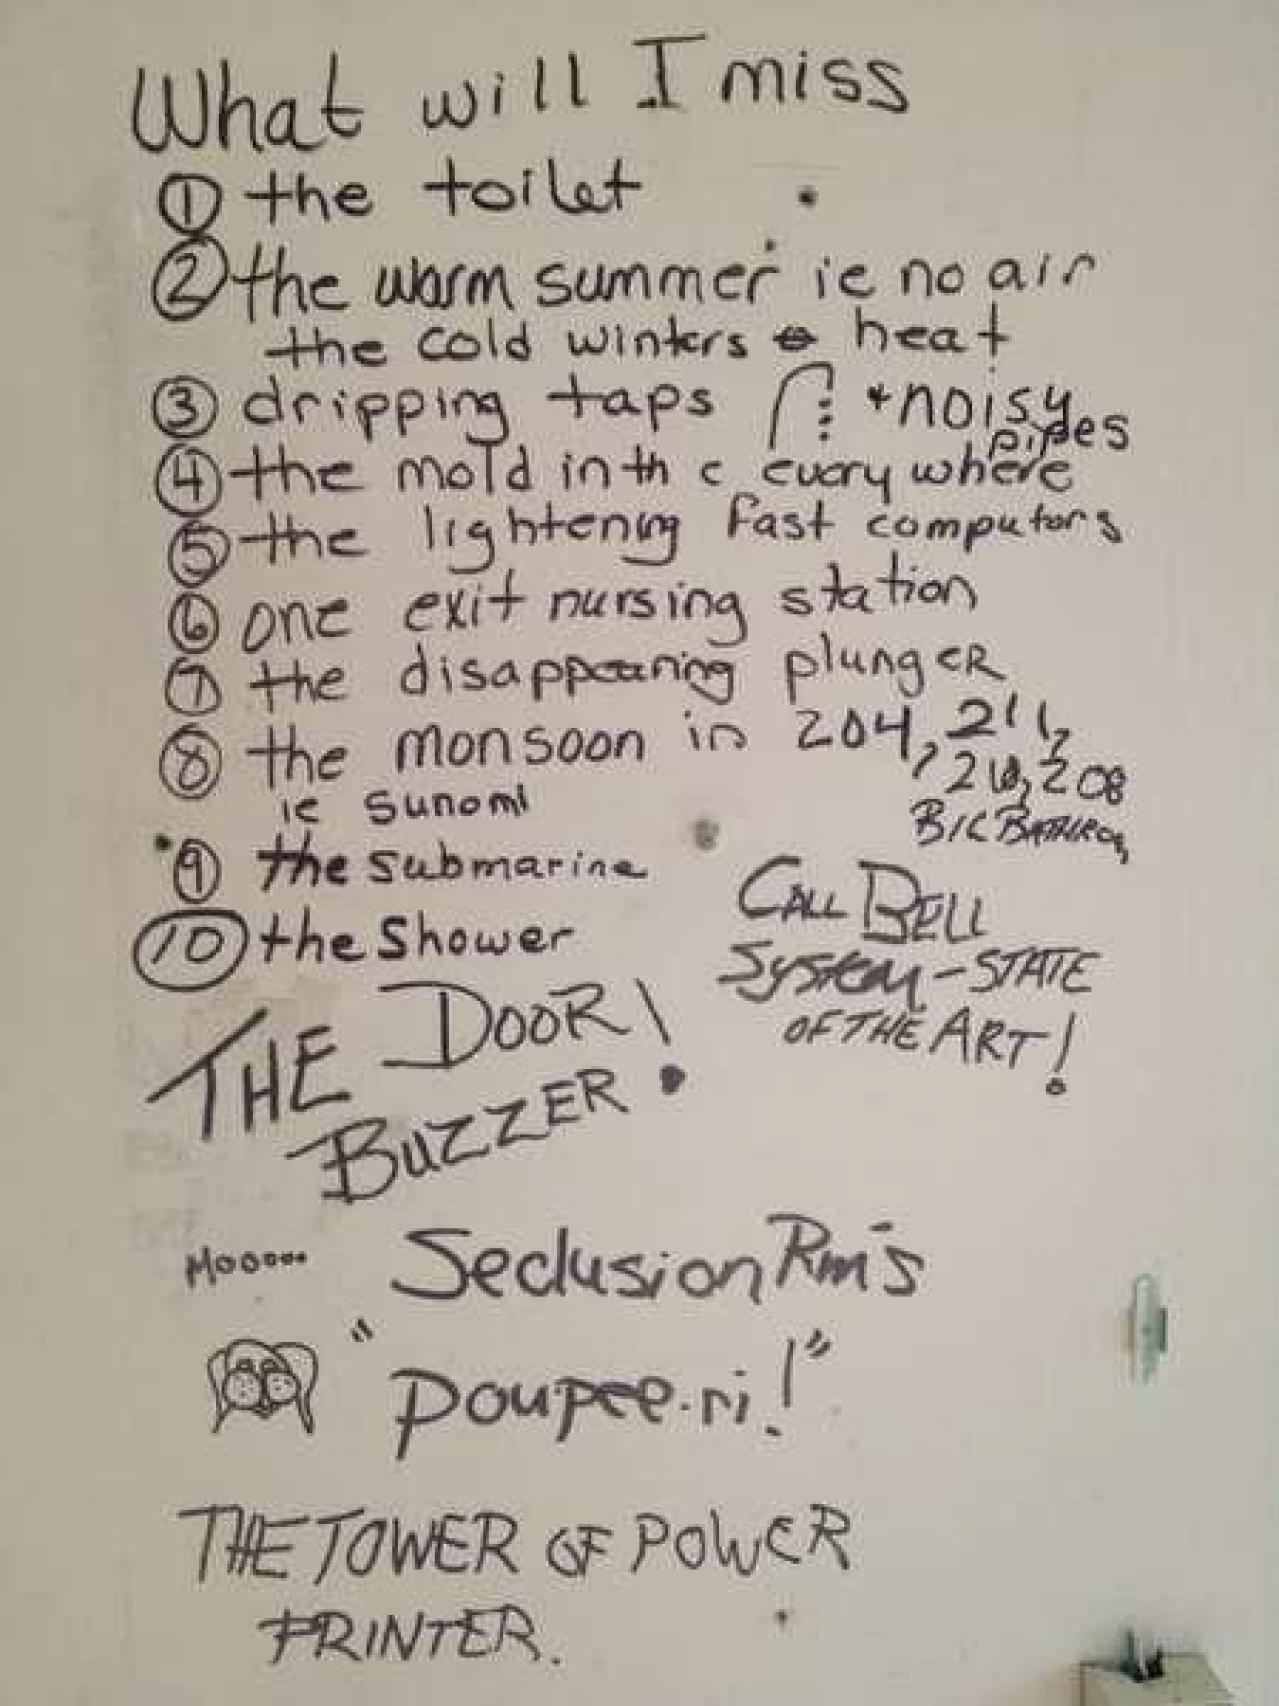 What will I miss
① the toilet
② the warm summer ie no air
the cold winters heat
③ dripping taps + noisy
pipes
④ the mold in th c every where
⑤ the lightening fast computors
⑥ one exit nursing station
⑦ the disappearing plunger
⑧ the monsoon in 204, 211,
, 210, 208
ie sunomi
B/C
⑨ the submarine
⑩ the Shower
CALL BELL
System - STATE
OF THE ART!
THE DOOR!
BUZZER!
Moo....
Seclusion Rm's
"poupee.ri!"
THE TOWER OF POWER
PRINTER.